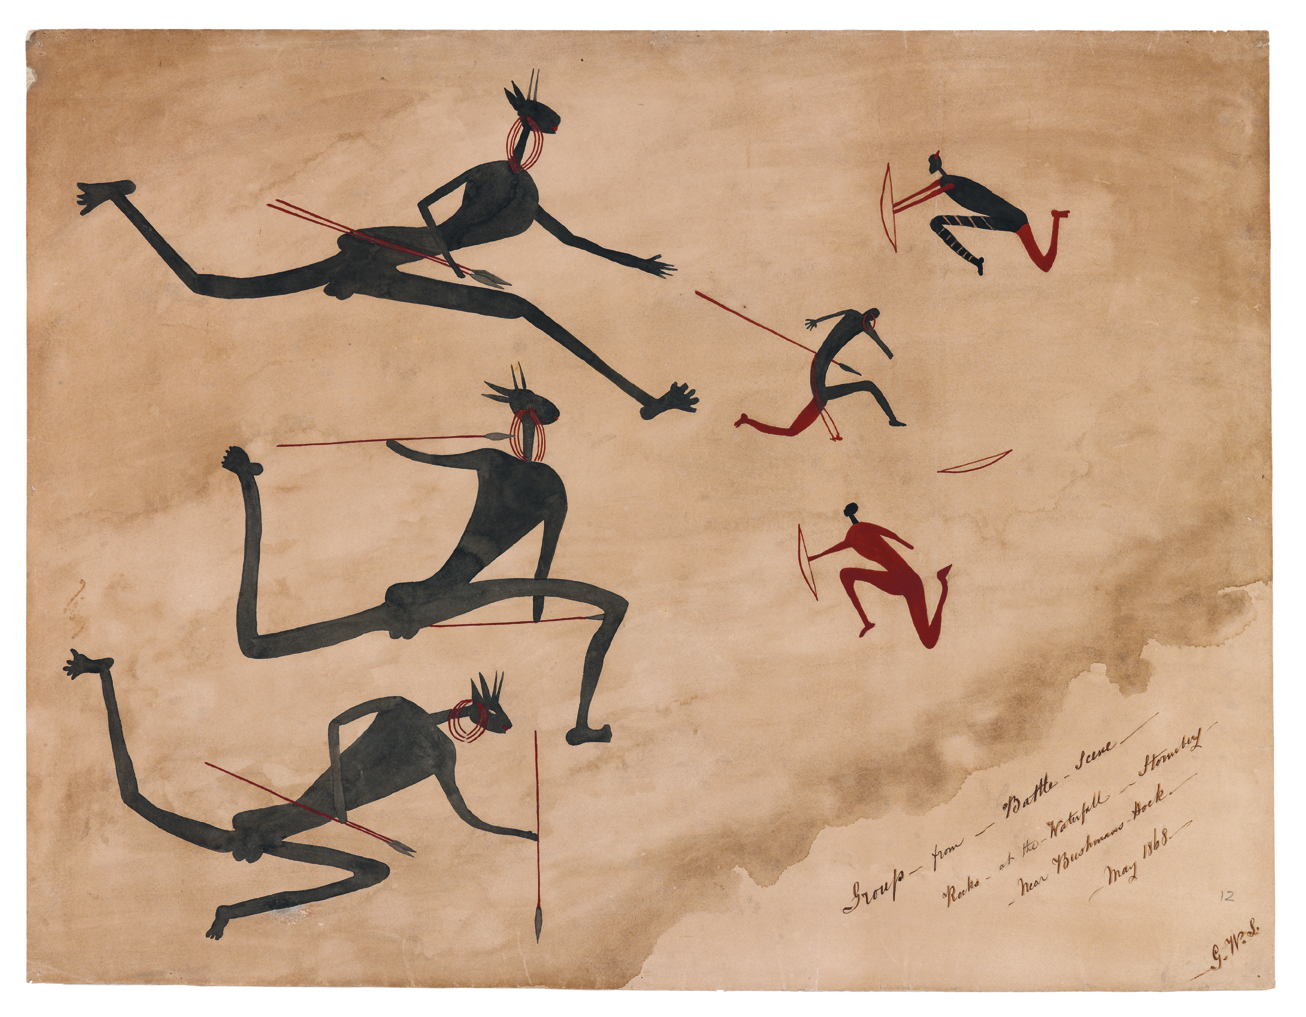 Group – from – Battle – Scene –
Rocks – at the – Waterfall – Stormberg –
– Near Bushmans – Hock. –
– May 1868. –
12
G. W. S.